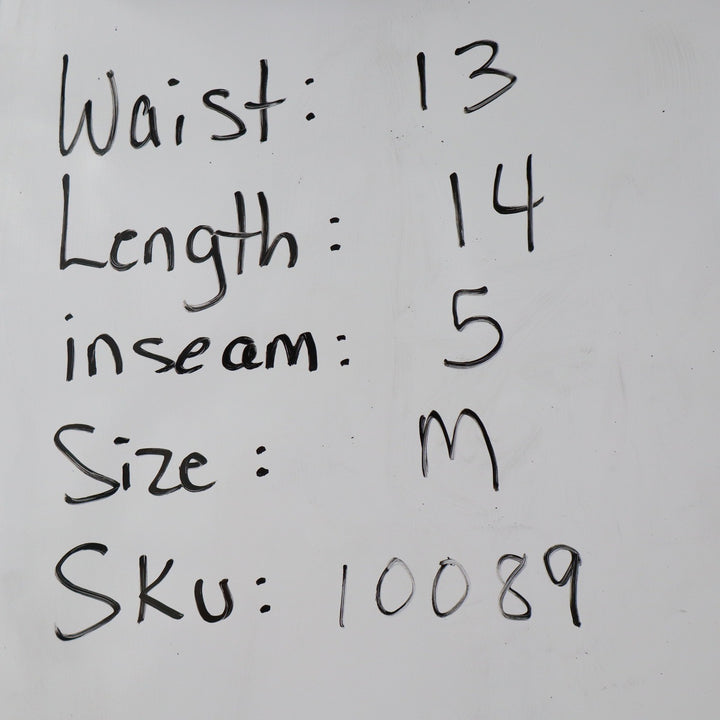 Waist: 13
Length: 14
inseam: 5
Size: M
SKU: 10089